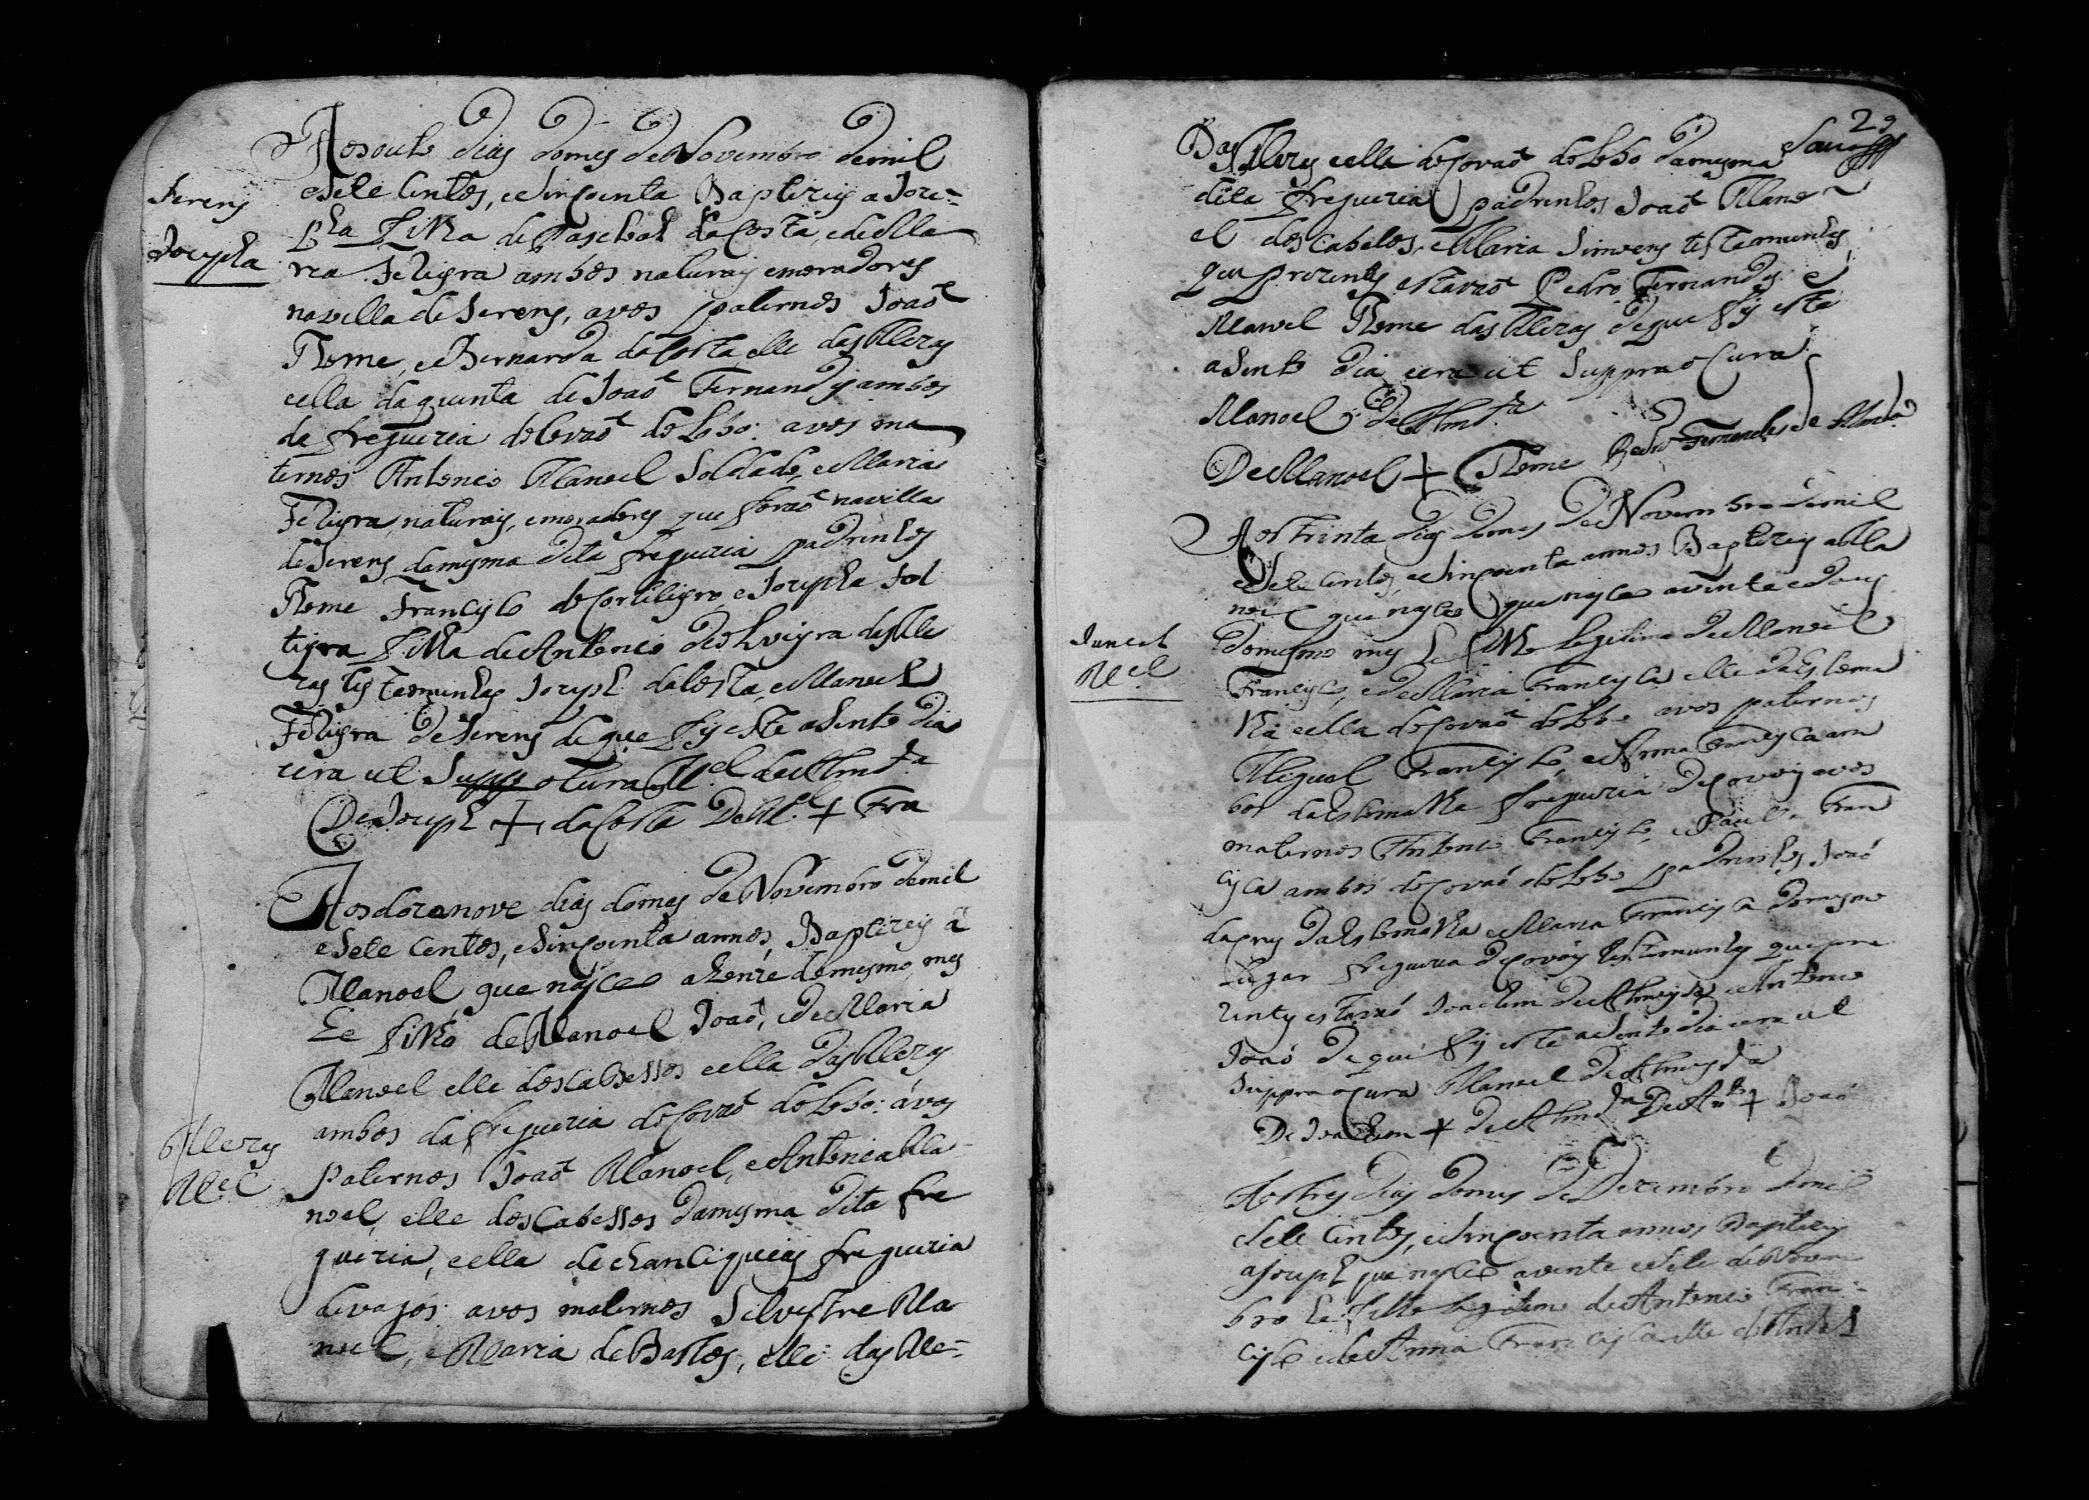 Aos outo dias do mes de Novembro de mil
e sete Centos, e sinçoenta Baptizey a Joze-
pha filha de Paschoal da Costa, e de Ma
ria Feligra ambos naturaiz e moradores
na villa de Serem, avos paternos João
Thome, e Bernarda da Costa elle das Mezas
e ella da quinta de João Fernandez ambos
da freguezia do Covaõ do Lobo: avos ma
ternos Antonio Manoel Soldado, e Maria
Feligra, naturaiz, e moradores que foraõ na villa
de Serem da mesma dita freguezia padrinhos
Thome Francisco de e Jozepha Fel
igra filha de Antonio de Oliveyra das Me
zas testemunhas Jozeph da Costa, e Manoel
Feligra de Serem de que fiz este asento dia
e era ut Supra o Cura M.el de Almda
De Jozeph + da Costa De M.el + Fra
Serem
Jozepha
Aos dozanove dias do mes de Novembro de mil
e sete Centos, e sinçoenta annos, Baptizey a
Manoel, que nasceo a honze do mesmo mes
he filho de Manoel João, e de Maria
Manoel elle dos Cabessos e ella das Mezas
ambos da freguezia do Covaõ do Lobo: avos
Paternos João Manoel, e Antonia Ma
noel, elle dos Cabessos da mesma dita fre
guezia, e ella de freguezia
de vagos: avos maternos Silvestre Ma
noel, e Maria de Bastos, elle das Me-
Mezas
M.el
29
das Mezas e ella do Covaõ do Lobo da mesma
dita freguezia padrinhos João Mano
el dos Cabesos, e Maria Simoens testemunhas
que prezentes estavaõ Pedro Fernandes e
Manoel Thome das Mezas de que fiz este
asento dia e era ut Suppra o Cura
Manoel de Almda
De Manoel + Thome Pedro Fernandes de Almda
Aos trinta dias do mes de Novembro de mil
e sete Centos, e sinçoenta annos Baptizey a Ma
noel que nasceo que nasceo a vinte e dous
do mesmo mes he filho legitimo de Manoel
Francisco, e de Maria Francisca elle da Estema
nha e ella do Covaõ do Lobo avos paternos
Miguel Francisco, e Anna Francisca am
bos da Estemanha freguezia de avos
maternos Antonio Francisco, e Paula Fran
cisca ambos do Covaõ do Lobo padrinhos João
da Cruz da Estemanha e Maria Francisca do mesmo
lugar freguezia de testemunhas que pre
zentes estavaõ Joachim de Almeyda e Antonio
João de que fiz este asento dia e era ut
suppra o Cura Manoel de Almeyda
De Joachim + de Almda De Anto + João
M.el
Aos tres dias do mes de Dezembro de mil
e sete Centos, e sinçoenta annos Baptizey
a Jozeph que nasceo a vinte e sete de Novem
bro he filho legitimo de Antonio Fran-
cisco e de Anna Francisca elle